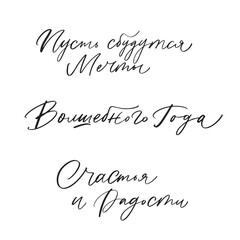 Пусть сбудутся
Мечты
Волшебного Года
Счастья
и Радости